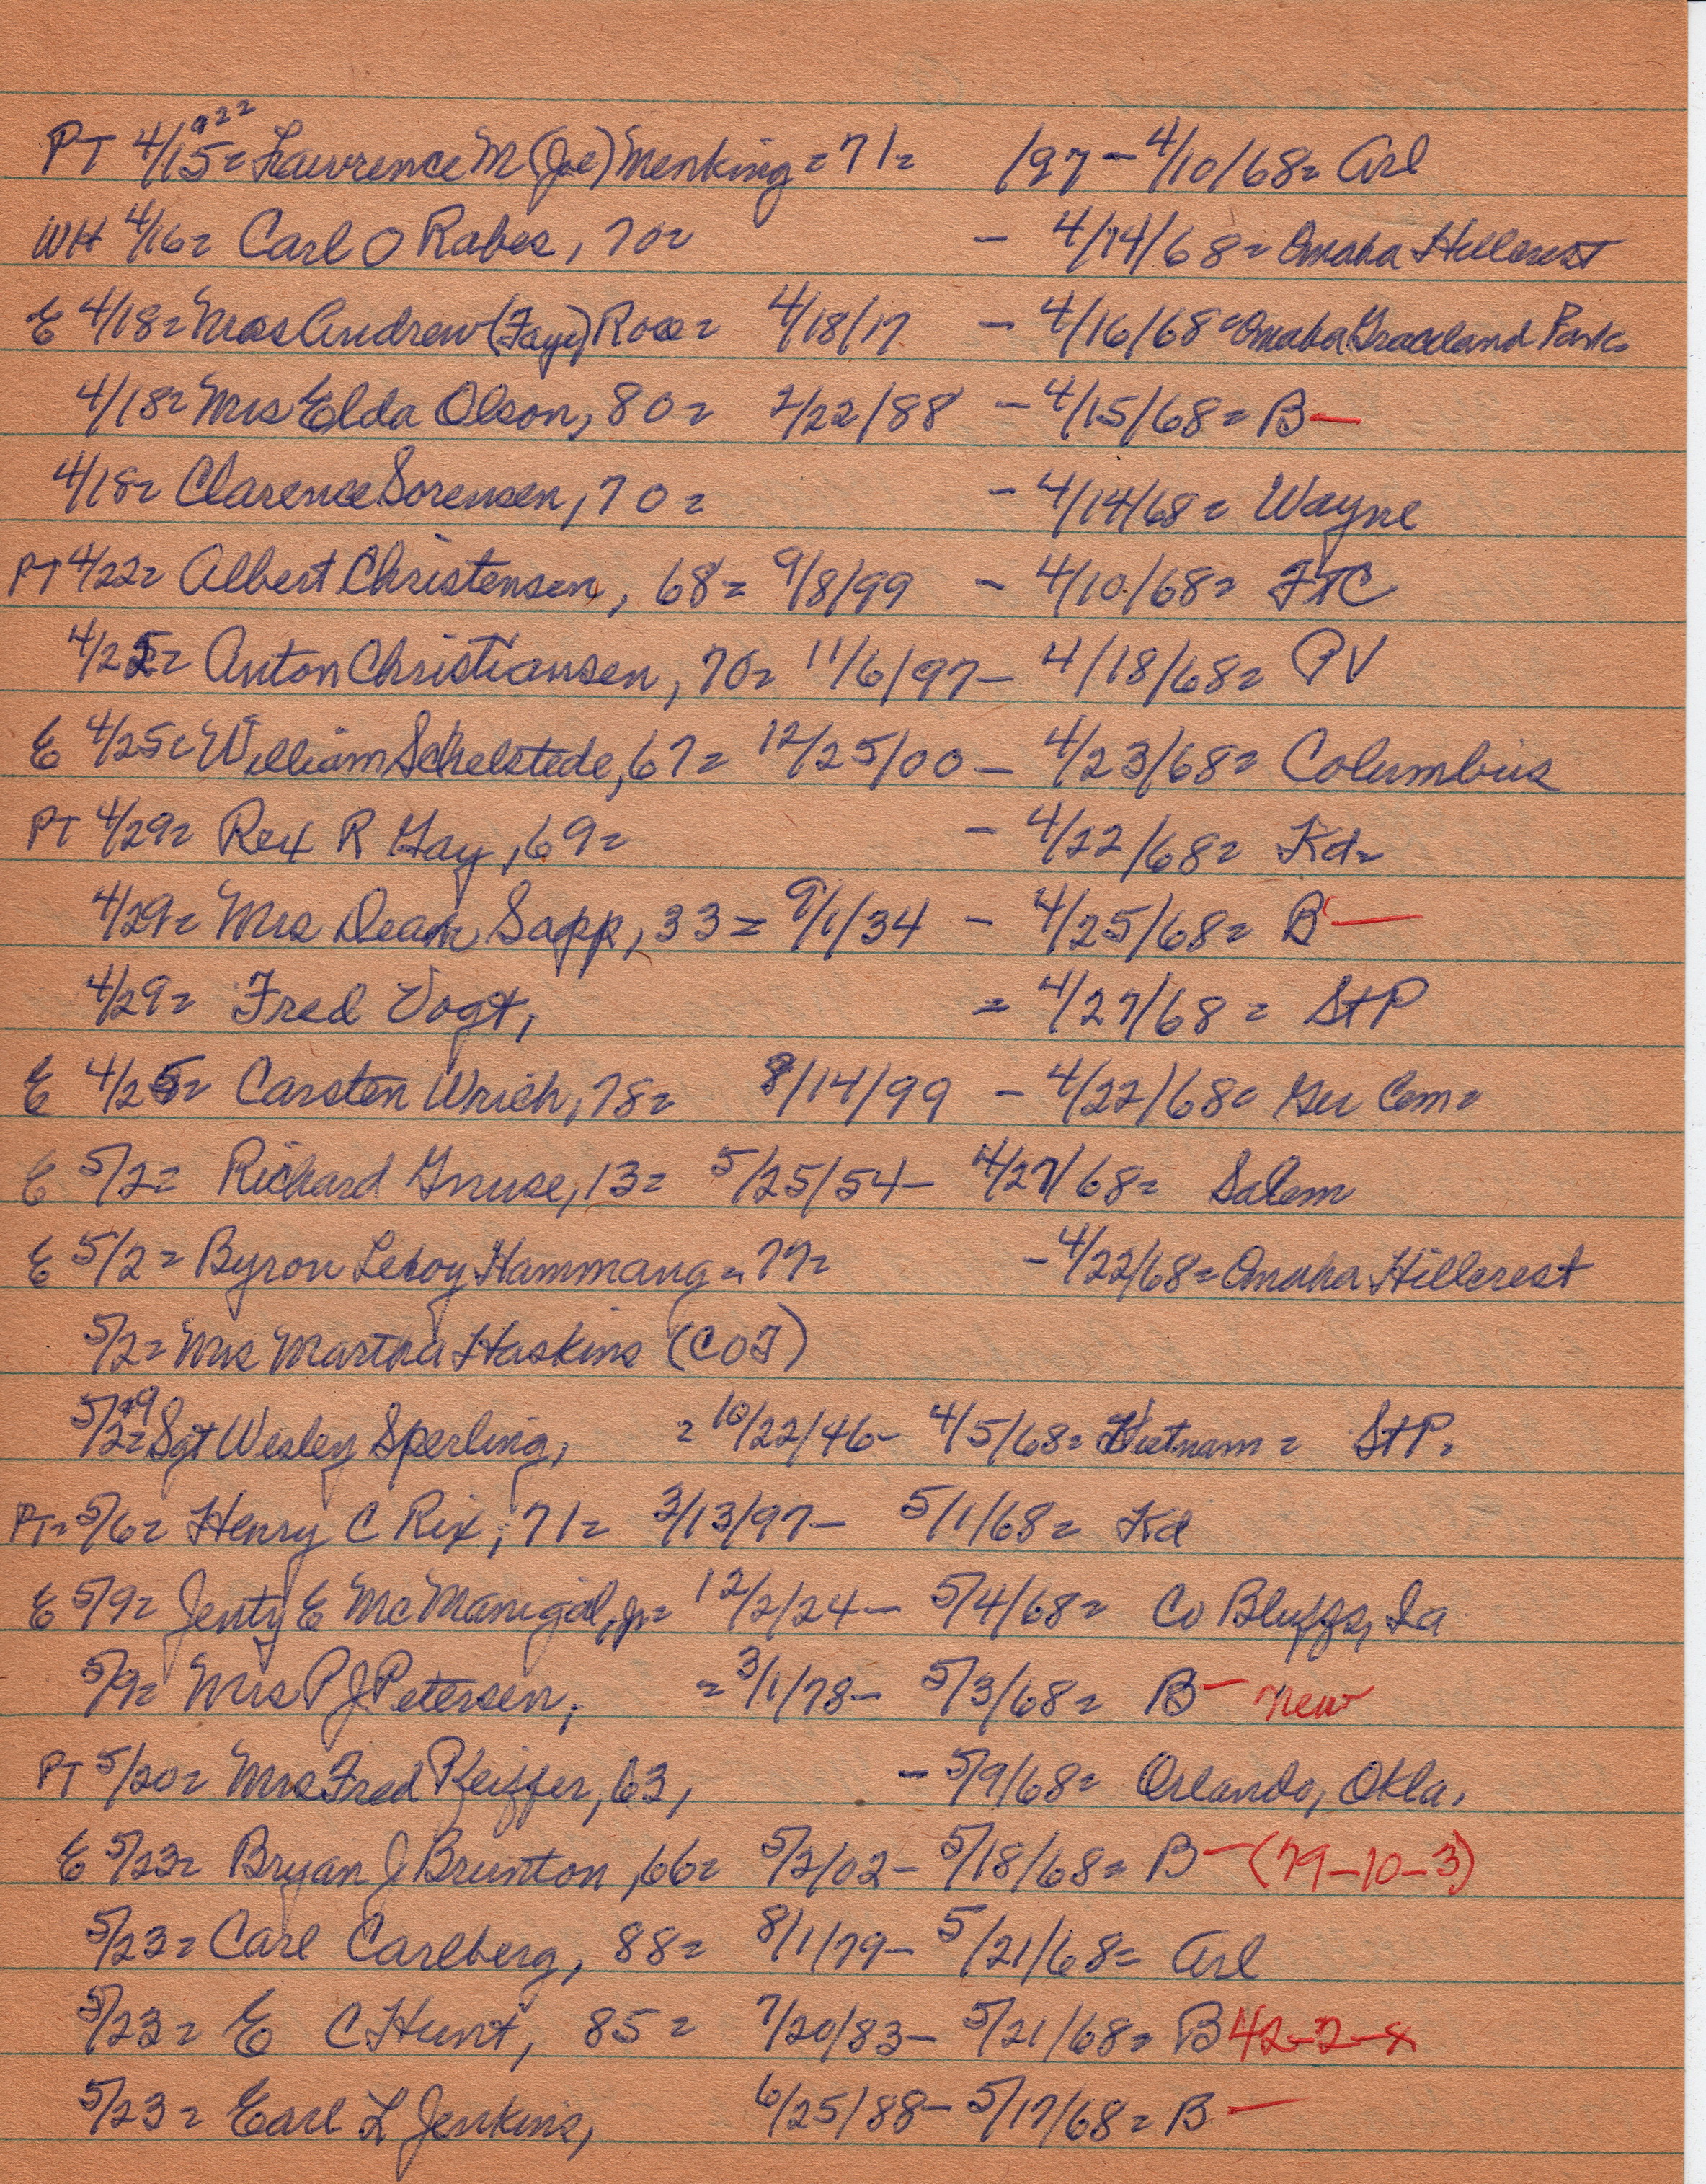 PT 4/15 922 = Lawrence M (Joe) Menking = 71 = /97 - 4/10/68 = Arl
WH 4/16 = Carl O Rabes, 70 = - 4/14/68 = Omaha Hillcrest
E 4/18 = Mrs Andrew (Faye) Rose = 4/18/17 - 4/16/68 = Omaha Graceland Park
4/18 = Mrs Elda Olson, 80 = 2/22/88 - 4/15/68 = B —
4/18 = Clarence Sorensen, 70 = - 4/14/68 = Wayne
PT 4/22 = Albert Christensen, 68 = 9/8/99 - 4/10/68 = FTC
4/25 = Anton Christiansen, 70 = 11/6/97 - 4/18/68 = PV
E 4/25 = William Schelstede, 67 = 12/25/00 - 4/23/68 = Columbus
PT 4/29 = Rex R Gay, 69 = - 4/22/68 = Kd =
4/29 = Mrs Dean Sapp, 33 = 9/1/34 - 4/25/68 = B —
4/29 = Fred Vogt, = 4/27/68 = St P
E 4/25 = Carsten Wrich, 78 = 8/14/99 - 4/22/68 = Ger Cem =
E 5/2 = Richard Gruse, 13 = 5/25/54 - 4/27/68 = Salem
E 5/2 = Byron Leroy Hammang = 77 = - 4/22/68 = Omaha Hillcrest
5/2 = Mrs Martha Haskins (COT)
5/2 = Sgt Wesley Sperling, = 10/22/46 - 4/5/68 = Vietnam = St P.
PT = 5/6 = Henry C Rix, 71 = 3/13/97 - 5/1/68 = Kd
E 5/9 = Jenty E McManigal, Jr = 12/2/24 - 5/4/68 = Co Bluffs, Ia
5/9 = Mrs P J Petersen, = 3/1/78 - 5/3/68 = B — new
PT 5/20 = Mrs Fred Pfeiffer, 63, - 5/9/68 = Orlando, Okla.
E 5/23 = Bryan J Brunton, 66 = 5/2/02 - 5/18/68 = B — (79-10-3)
5/23 = Carl Carlberg, 88 = 8/1/79 - 5/21/68 = Arl
5/23 = E C Hunt, 85 = 7/20/83 - 5/21/68 = B 42-2-8
5/23 = Earl L Jenkins, 6/25/88 - 5/17/68 = B —